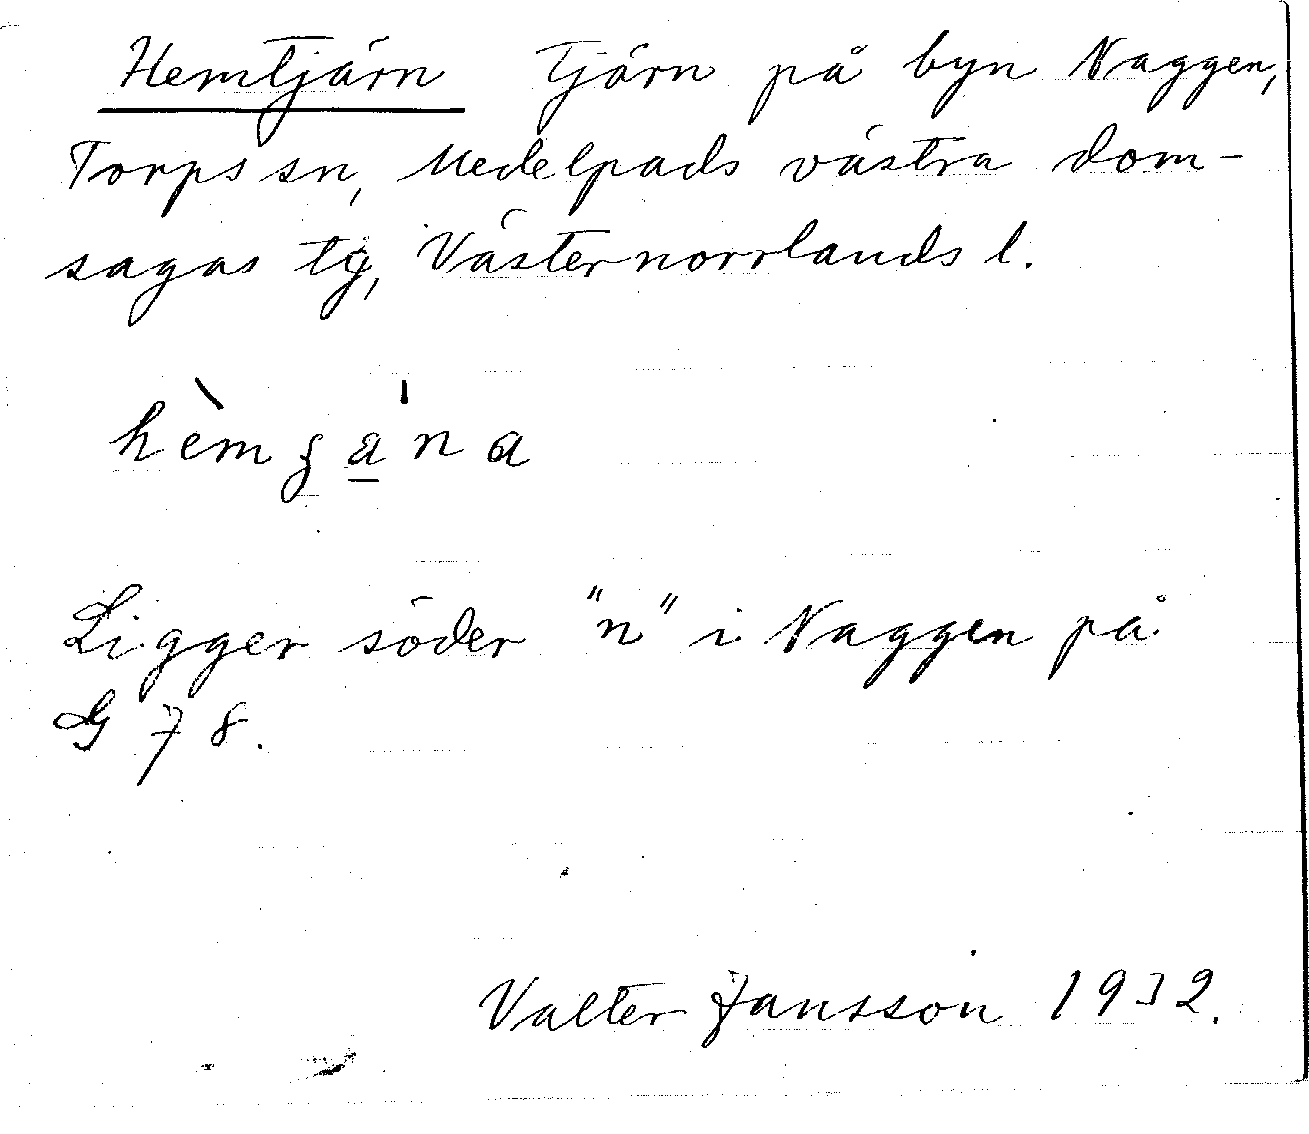 Hemtjärn Tjärn på byn Naggen,
Torps sn, Medelpads västra dom-
sagas tg, Västernorrlands l.
Ligger söder "n" i Naggen på
G 78.
Valter Jansson 1932.